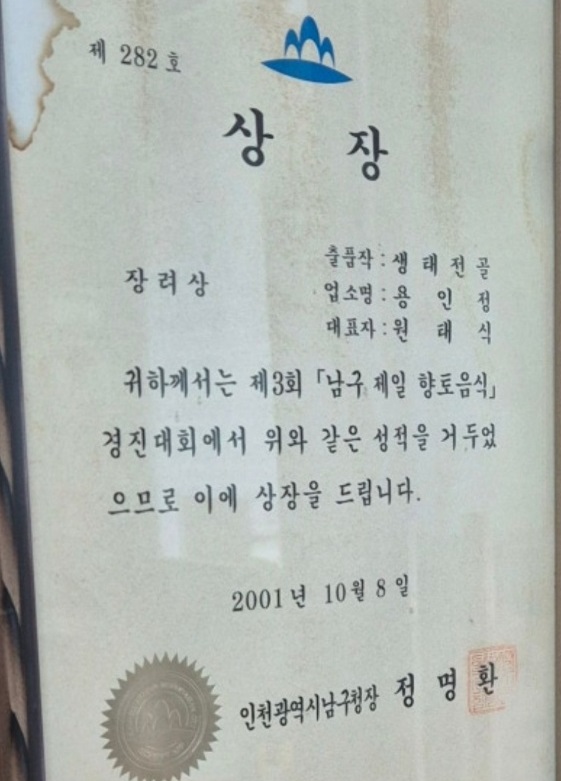 제 282 호
상 장
장려상
출품작 : 생태전골
업소명 : 용인정
대표자 : 원태식
귀하께서는 제3회 「남구 제일 향토음식」
경진대회에서 위와 같은 성적을 거두었
으므로 이에 상장을 드립니다.
2001년 10월 8일
인천광역시남구청장 정명환